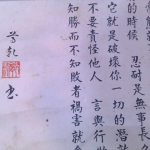 的時候　忍耐是無事長
它就是破壞你一切的潛
不要責怪他人　言與行
知勝而不知敗者禍害就
書